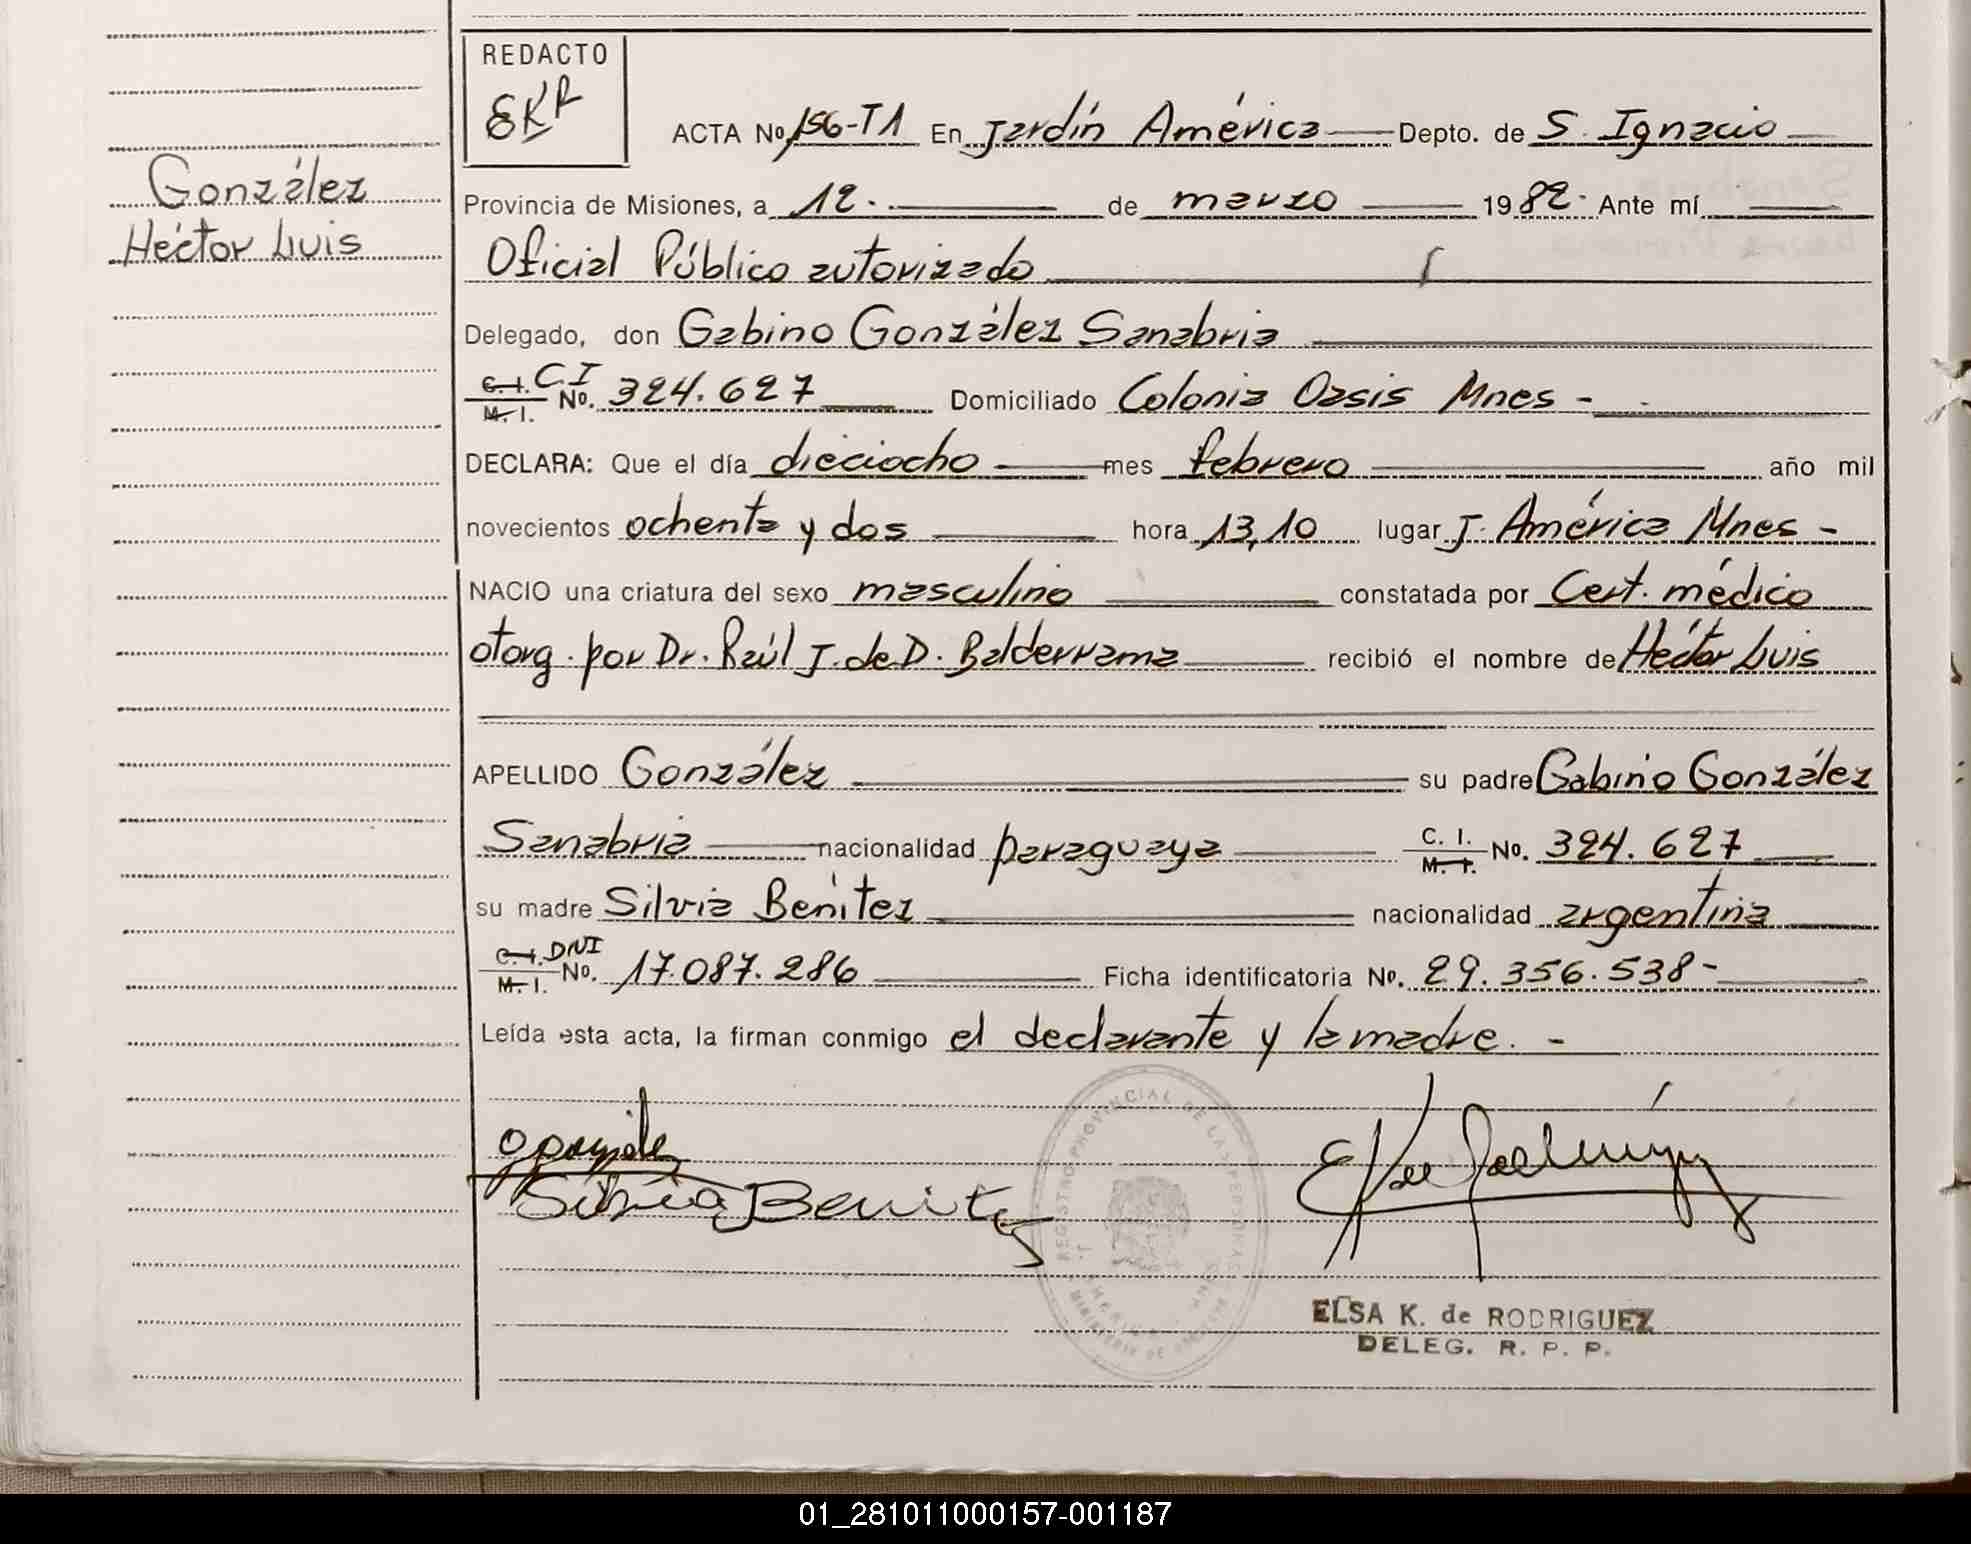 REDACTO
EKR
González
Héctor Luis
ACTA No 156-T1 En Jardín América Depto. de S. Ignacio
Provincia de Misiones, a 12. de marzo 1982. Ante mí
Oficial Público autorizado
Delegado, don Gabino González Sanabria
C. I. M. I. C.I No. 324.627 Domiciliado Colonia Oasis Mnes -
DECLARA: Que el día dieciocho mes febrero año mil
novecientos ochenta y dos hora 13,10 lugar J. América Mnes -
NACIO una criatura del sexo masculino constatada por Cert. médico
otorg. por Dr. Raúl J. de D. Balderrama recibió el nombre de Héctor Luis
APELLIDO González su padre Gabino González
Sanabria nacionalidad paraguaya C. I. M. I. No. 324.627
su madre Silvia Benítez nacionalidad argentina
C. I. M. I. DNI No. 17.087.286 Ficha identificatoria No. 29.356.538-
Leída esta acta, la firman conmigo el declarante y la madre. -
Silvia Benitez
REGISTRO PROVINCIAL DE LAS PERSONAS
ELSA K. de RODRIGUEZ
DELEG. R. P. P.
01_281011000157-001187